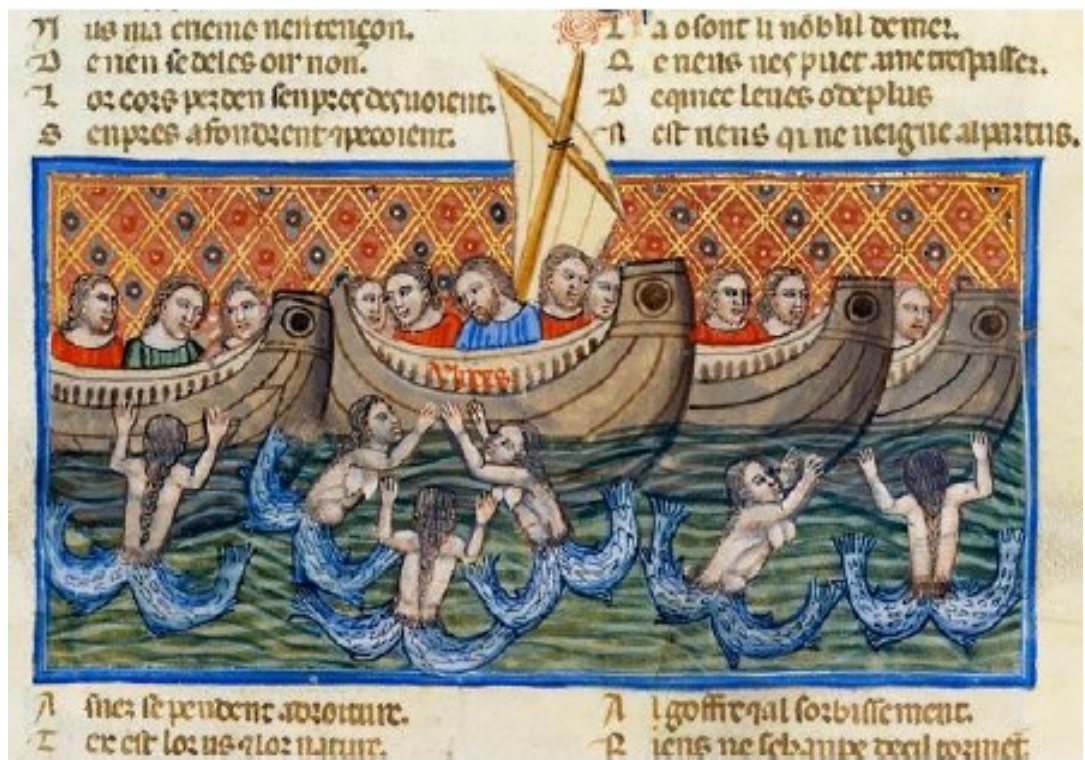 us ma nentençon.
D e nen se deles oir non.
L or cors perden senpres desuoient.
S enpres afondrent ⁊ pecoient.
L a o sont li de mer.
Q e neus neç puet trespasser.
D leues o de plus
N est neus qi ne al pertus.
Vlixes
A se pendent adroiture.
T ex est lor us ⁊ lor nature.
A l goffre ⁊ al sorbissement.
R iens ne de cil torment